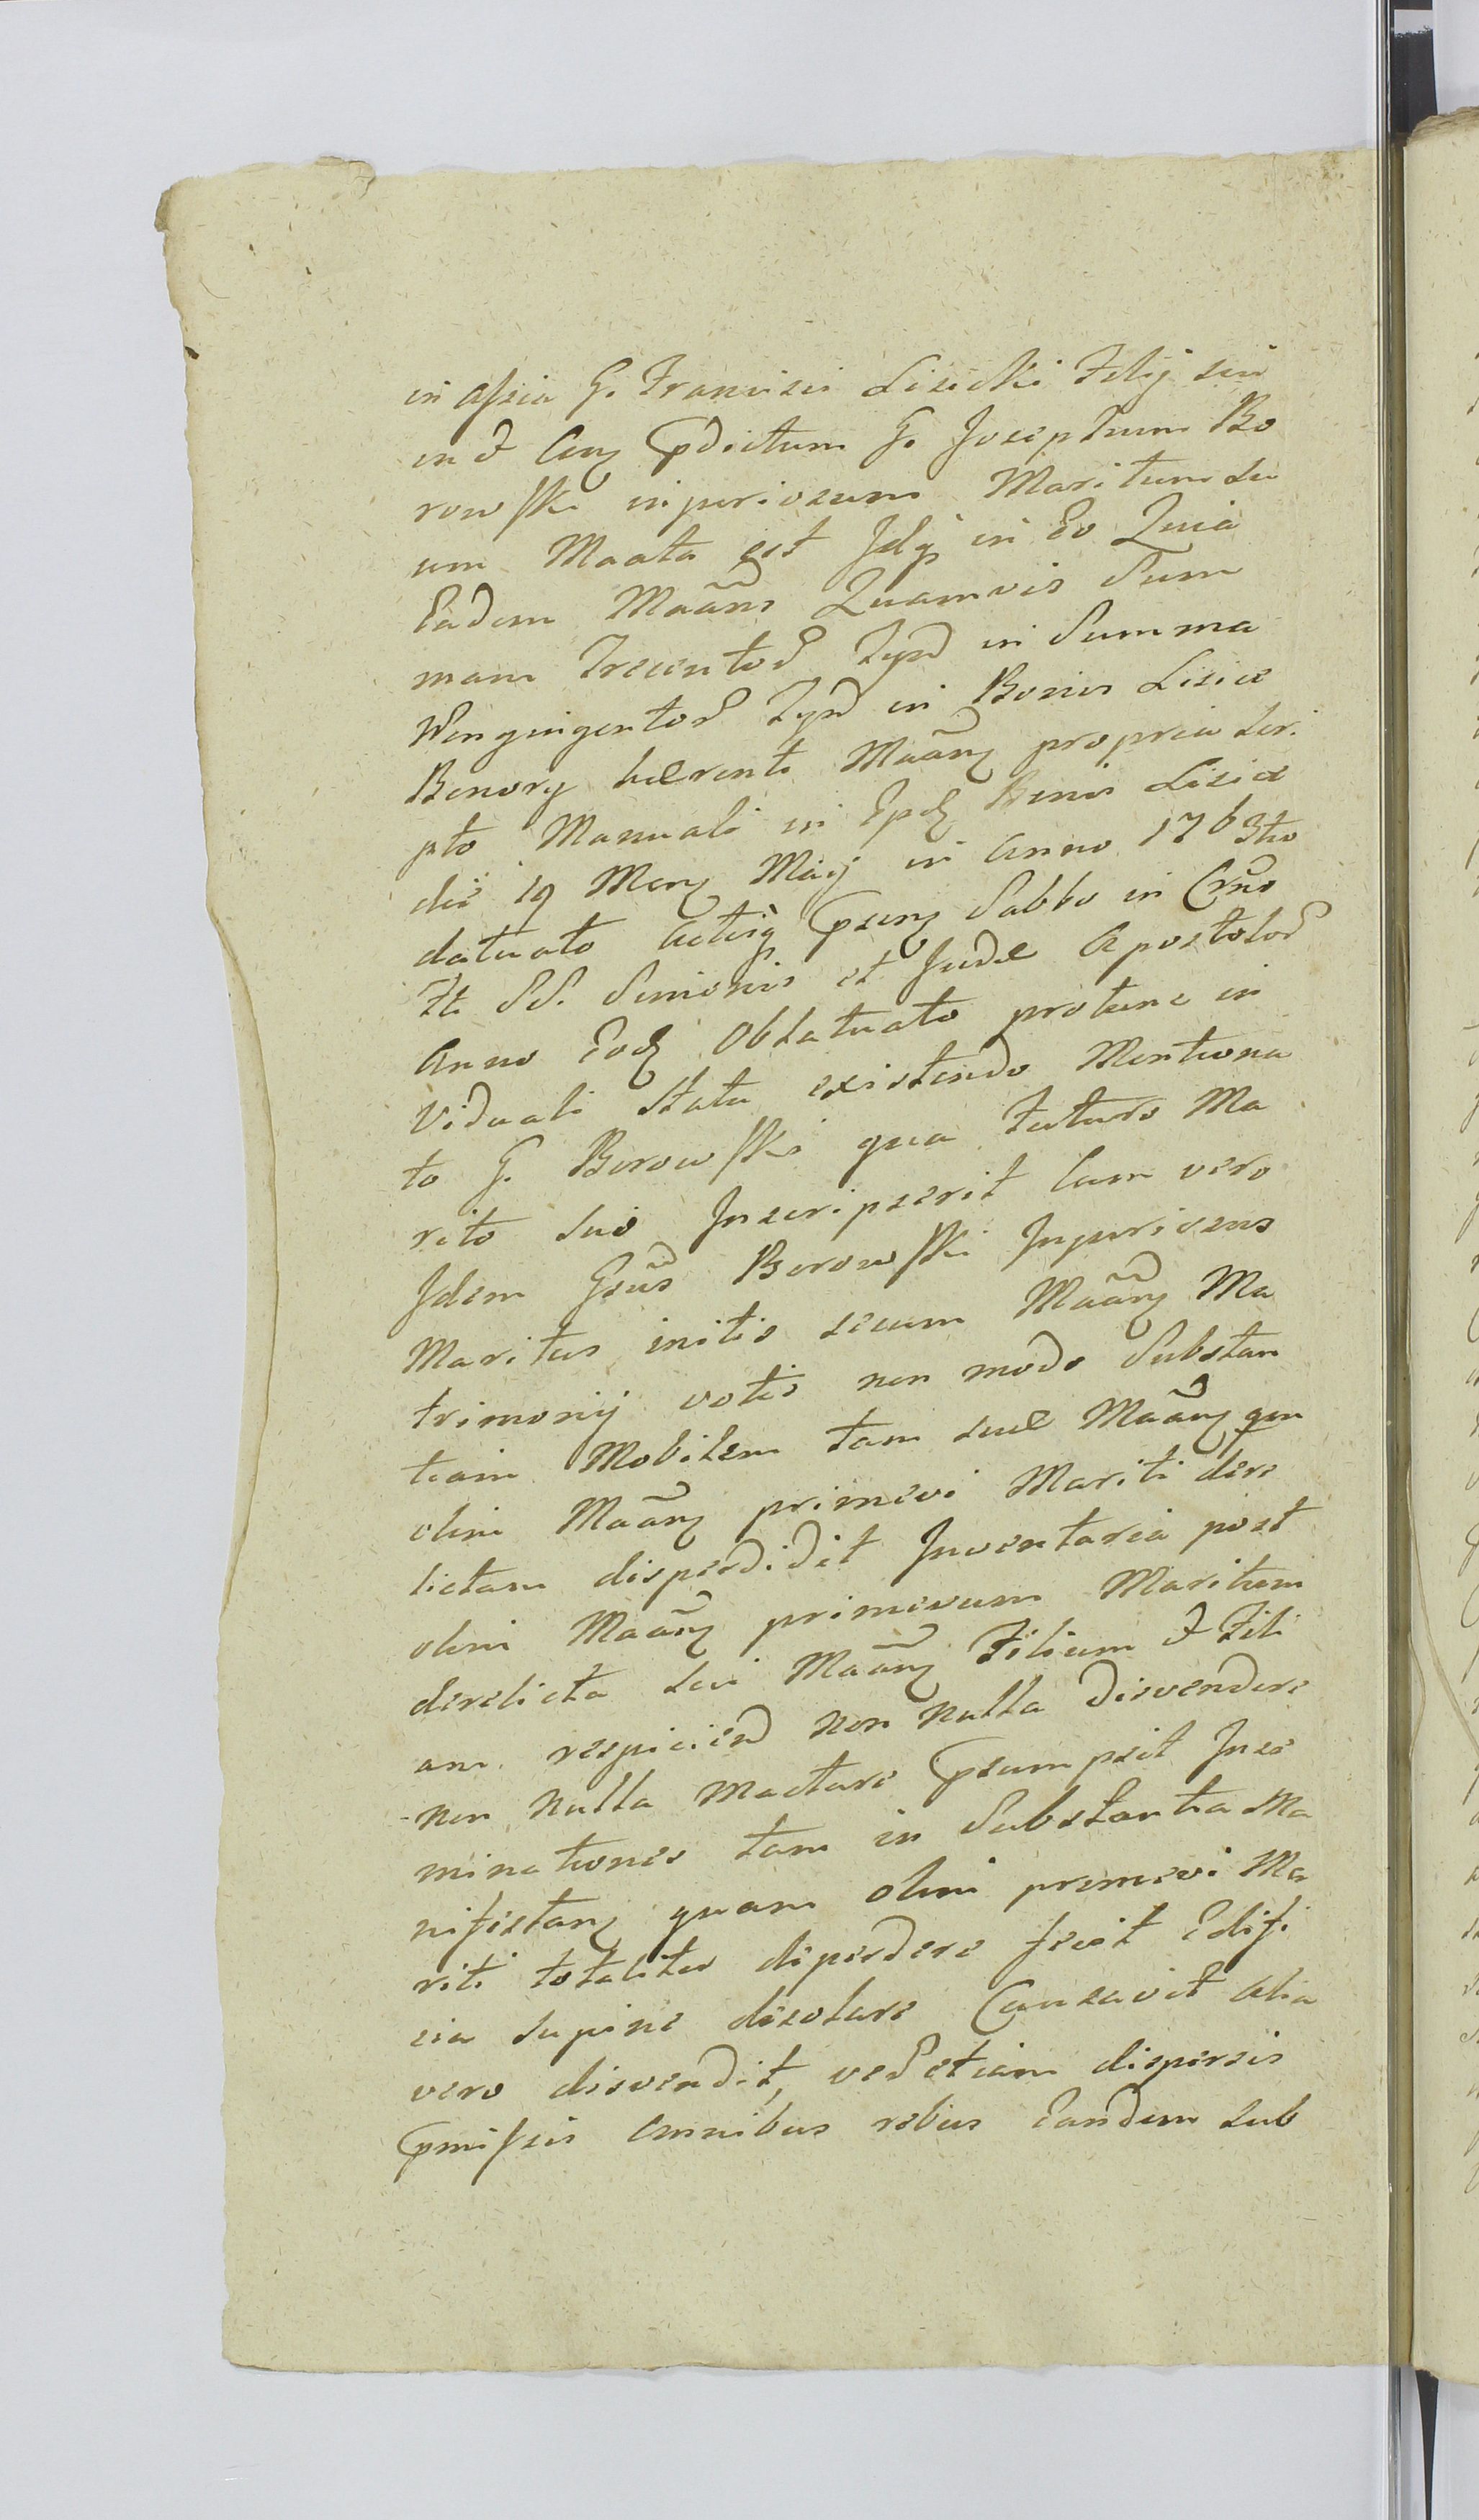 in assia G. Francisci Lisiecki Filij sui
in et Conz pdictum G. Josephum Bo
rowski injuriosum Maritum su
um Maata est Idqz in Eo Quia
Eadem Maãns Quamvis Sum
mam Trecentor Tynf in Summa
Quingentor Tynf in Bonis Lisice
Benory hærenti Maãnz propria scri
pto Manuali in Ipsz Bonis Lisice
die 19 Menz Maij in Anno 1763tio
datuato Actisqz psenz Sabbo in Crño
Fti SS. Simonis et Judæ Apostolor
Anno Eodz Oblatuato protunc in
Viduali Statu existendo Mentiona
to G. Borowski qua Futuro Ma
rito suo Inscripserit tam vero
Idem Gsũs Borowski Injuriosus
Maritus initis secum Maãnz Ma
trimonij votis non modo Substan
tiam Mobilem tam suæ Maãnz qm
olim Maãnz primevi Mariti dere
lictam disperdidit Inventaria post
olim Maãnz primevum Maritum
derelicta sui Maãnz Filium et Fili
am respiciend non nulla disvendere
non nulla mactare psumpsit Inse
minationes tam in Substantia Ma
nifestanz quam olim primevi Ma
riti totaliter disperdere fecit Edifi
cia supine desolare Causavit alia
vero disvendit, ved etiam dispersis
pmissis omnibus rebus Eandem sub